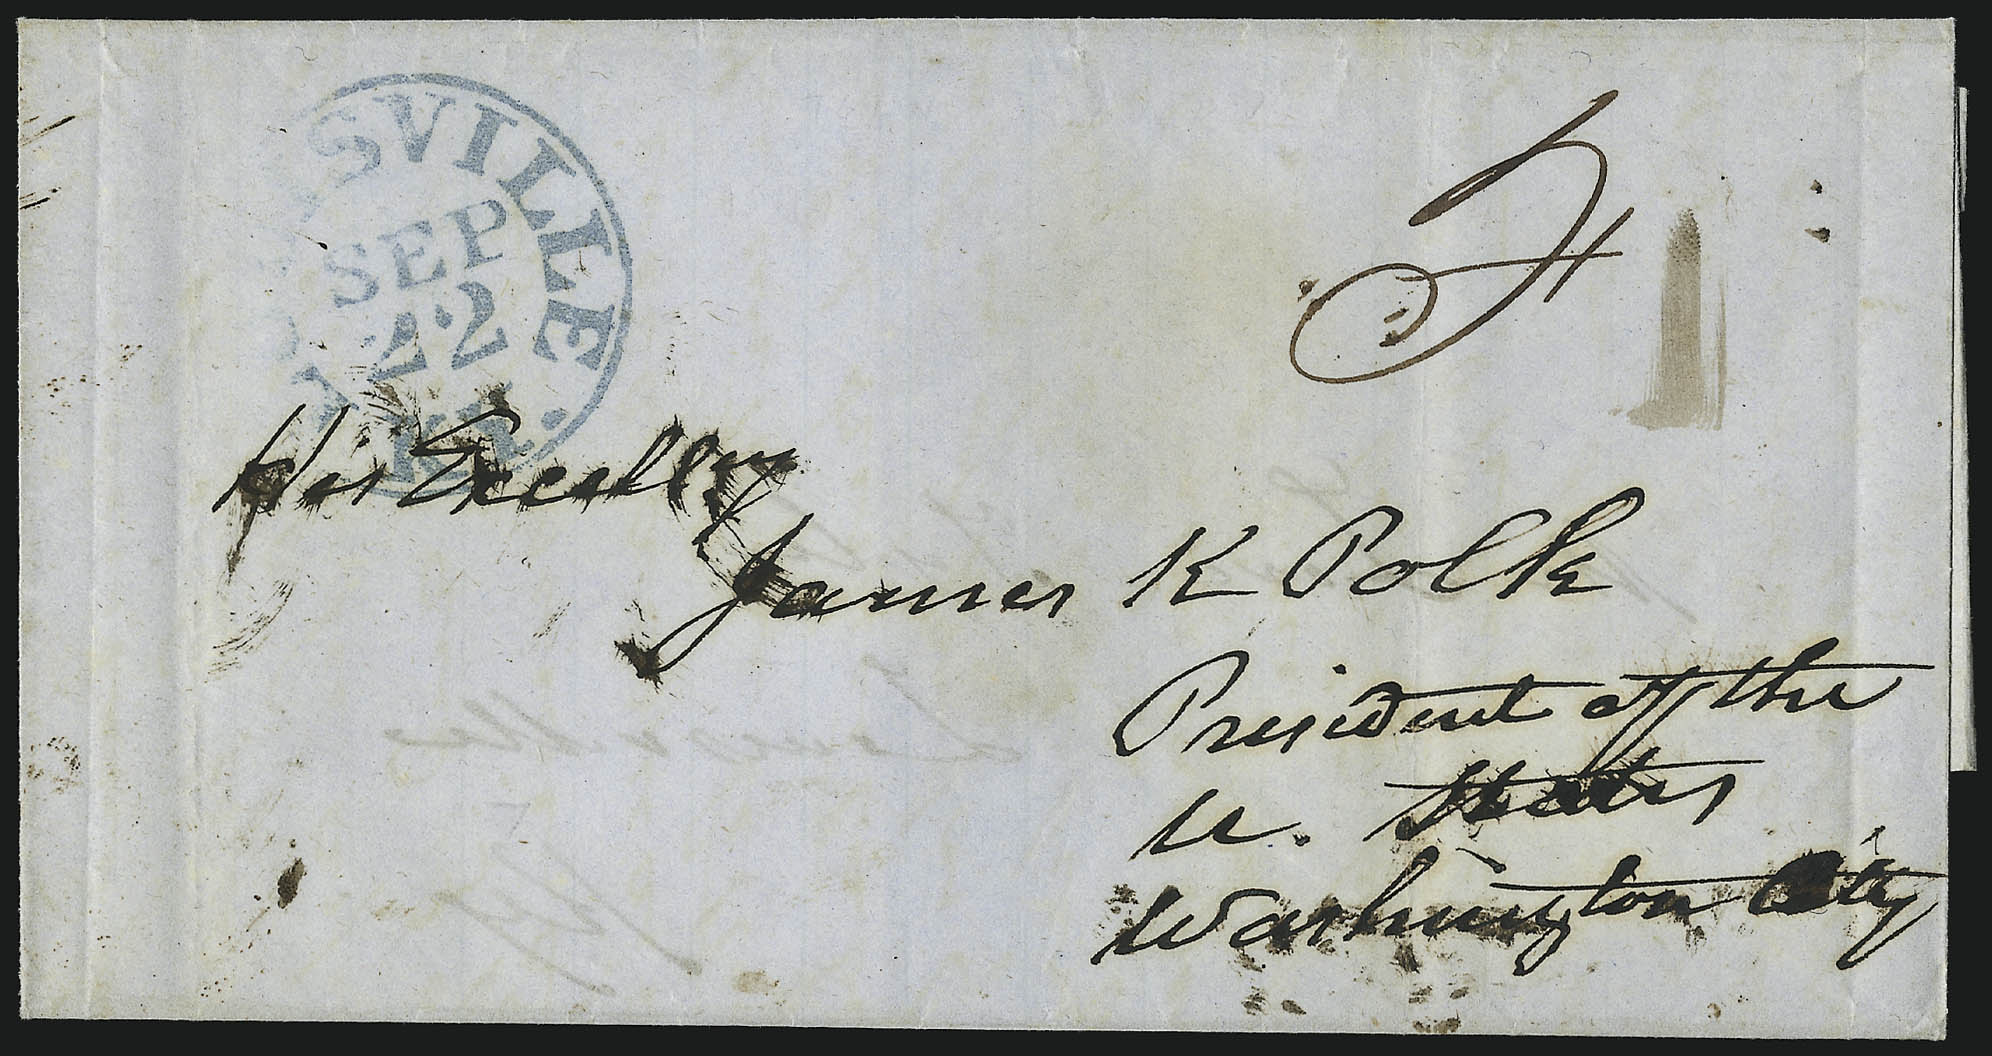 ISVILLE
SEP
22
KY.
His Excelly
James K Polk
President of the
U. States
Washington City